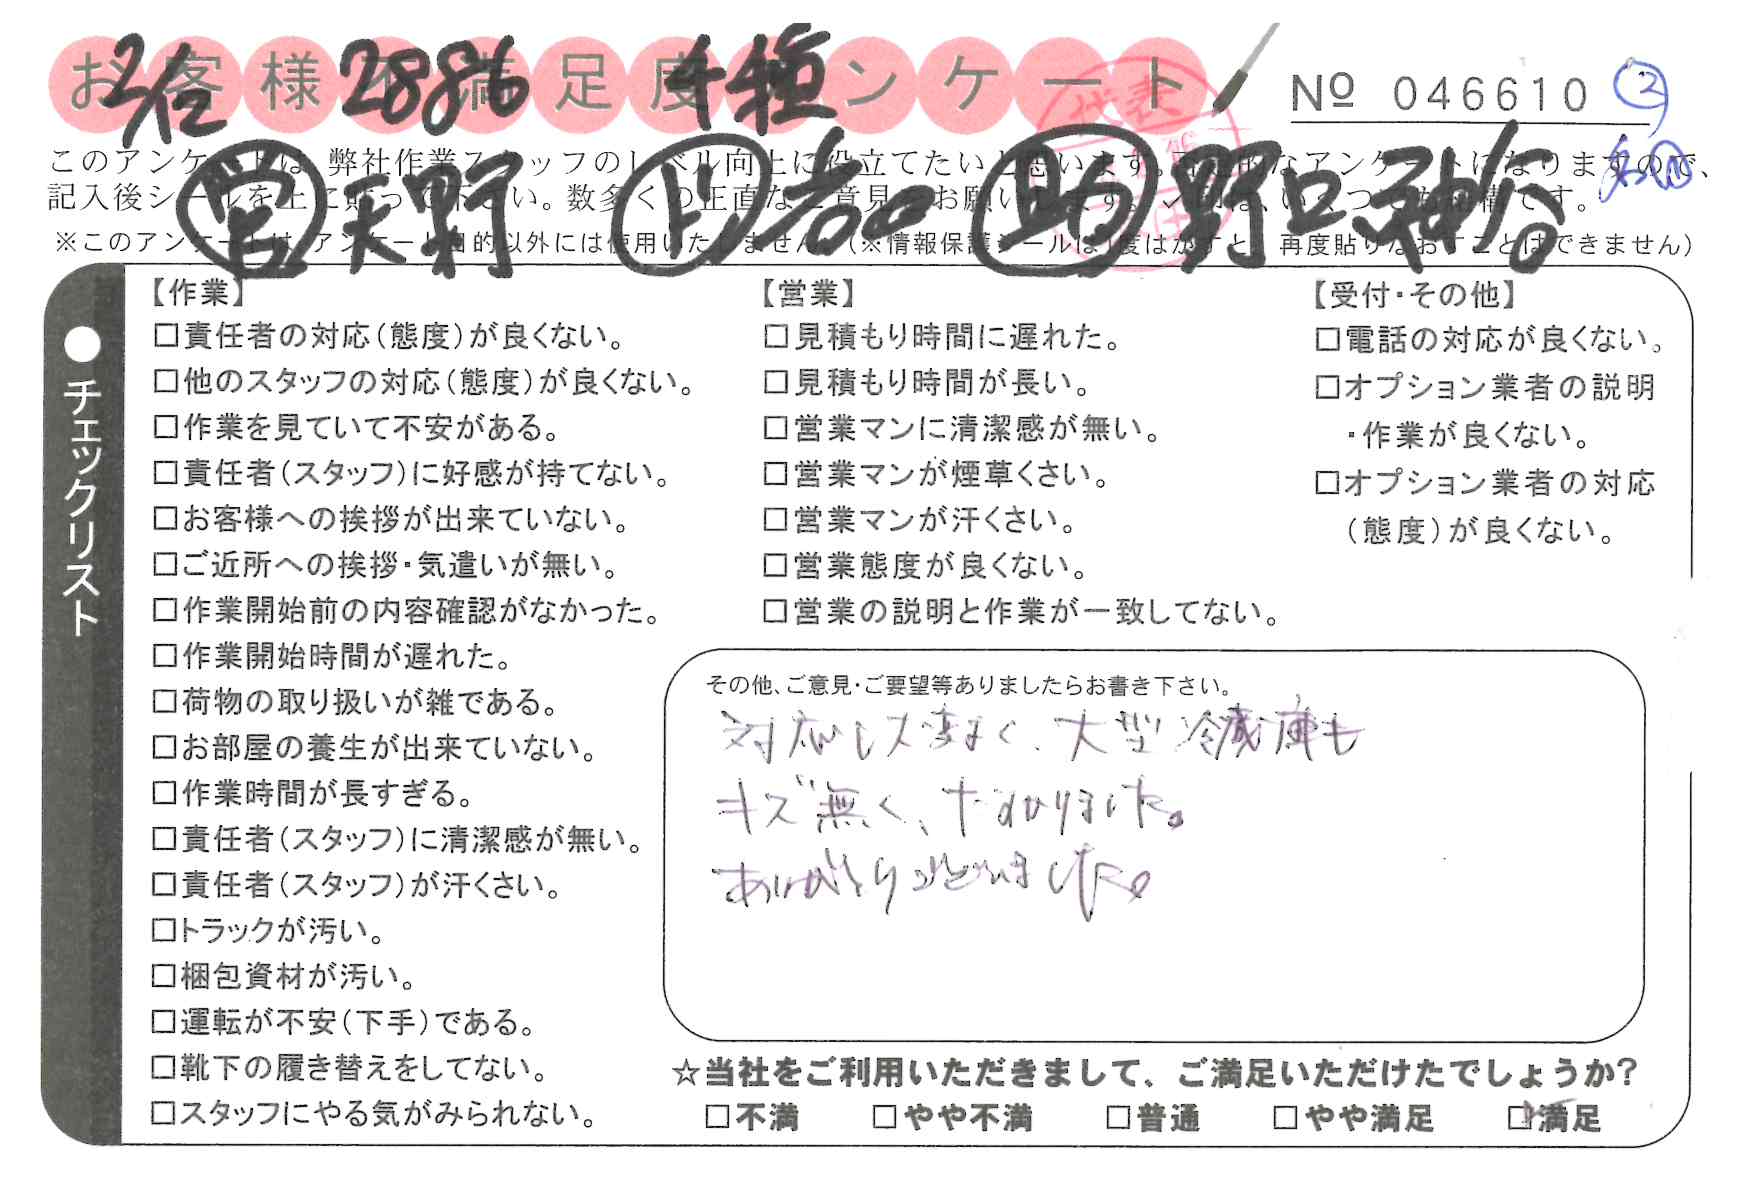 お客様不満足度アンケート
2886 千種
No 046610 ②
このアンケートは、弊社作業スタッフのレベル向上に役立てたいと思います。 なアンケートになりますので、
記入後シールを上に貼って下さい。数多くの正直なご意見をお願いします。 いくつでも結構です。
営 天野 ト 岩口 助 野口 神谷
※このアンケートは、アンケート目的以外には使用いたしません。(※情報保護シールは1度はがすと、再度貼りなおすことはできません)
●チェックリスト
【作業】
□責任者の対応(態度)が良くない。
□他のスタッフの対応(態度)が良くない。
□作業を見ていて不安がある。
□責任者(スタッフ)に好感が持てない。
□お客様への挨拶が出来ていない。
□ご近所への挨拶・気遣いが無い。
□作業開始前の内容確認がなかった。
□作業開始時間が遅れた。
□荷物の取り扱いが雑である。
□お部屋の養生が出来ていない。
□作業時間が長すぎる。
□責任者(スタッフ)に清潔感が無い。
□責任者(スタッフ)が汗くさい。
□トラックが汚い。
□梱包資材が汚い。
□運転が不安(下手)である。
□靴下の履き替えをしてない。
□スタッフにやる気がみられない。
【営業】
□見積もり時間に遅れた。
□見積もり時間が長い。
□営業マンに清潔感が無い。
□営業マンが煙草くさい。
□営業マンが汗くさい。
□営業態度が良くない。
□営業の説明と作業が一致してない。
【受付・その他】
□電話の対応が良くない。
□オプション業者の説明
・作業が良くない。
□オプション業者の対応
(態度)が良くない。
その他、ご意見・ご要望等ありましたらお書き下さい。
対応も 大型冷蔵庫も
キズ無く、たすかりました。
ありがとうございました。
☆当社をご利用いただきまして、ご満足いただけたでしょうか?
□不満 □やや不満 □普通 □やや満足 □満足